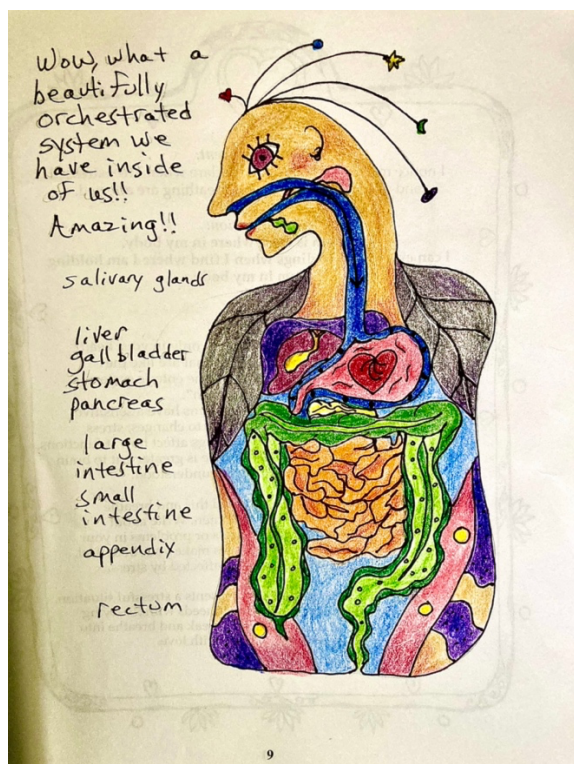 Wow, what a
beautifully
orchestrated
system we
have inside
of us!!
Amazing!!
salivary glands
liver
gall bladder
stomach
pancreas
large
intestine
small
intestine
appendix
rectum
9